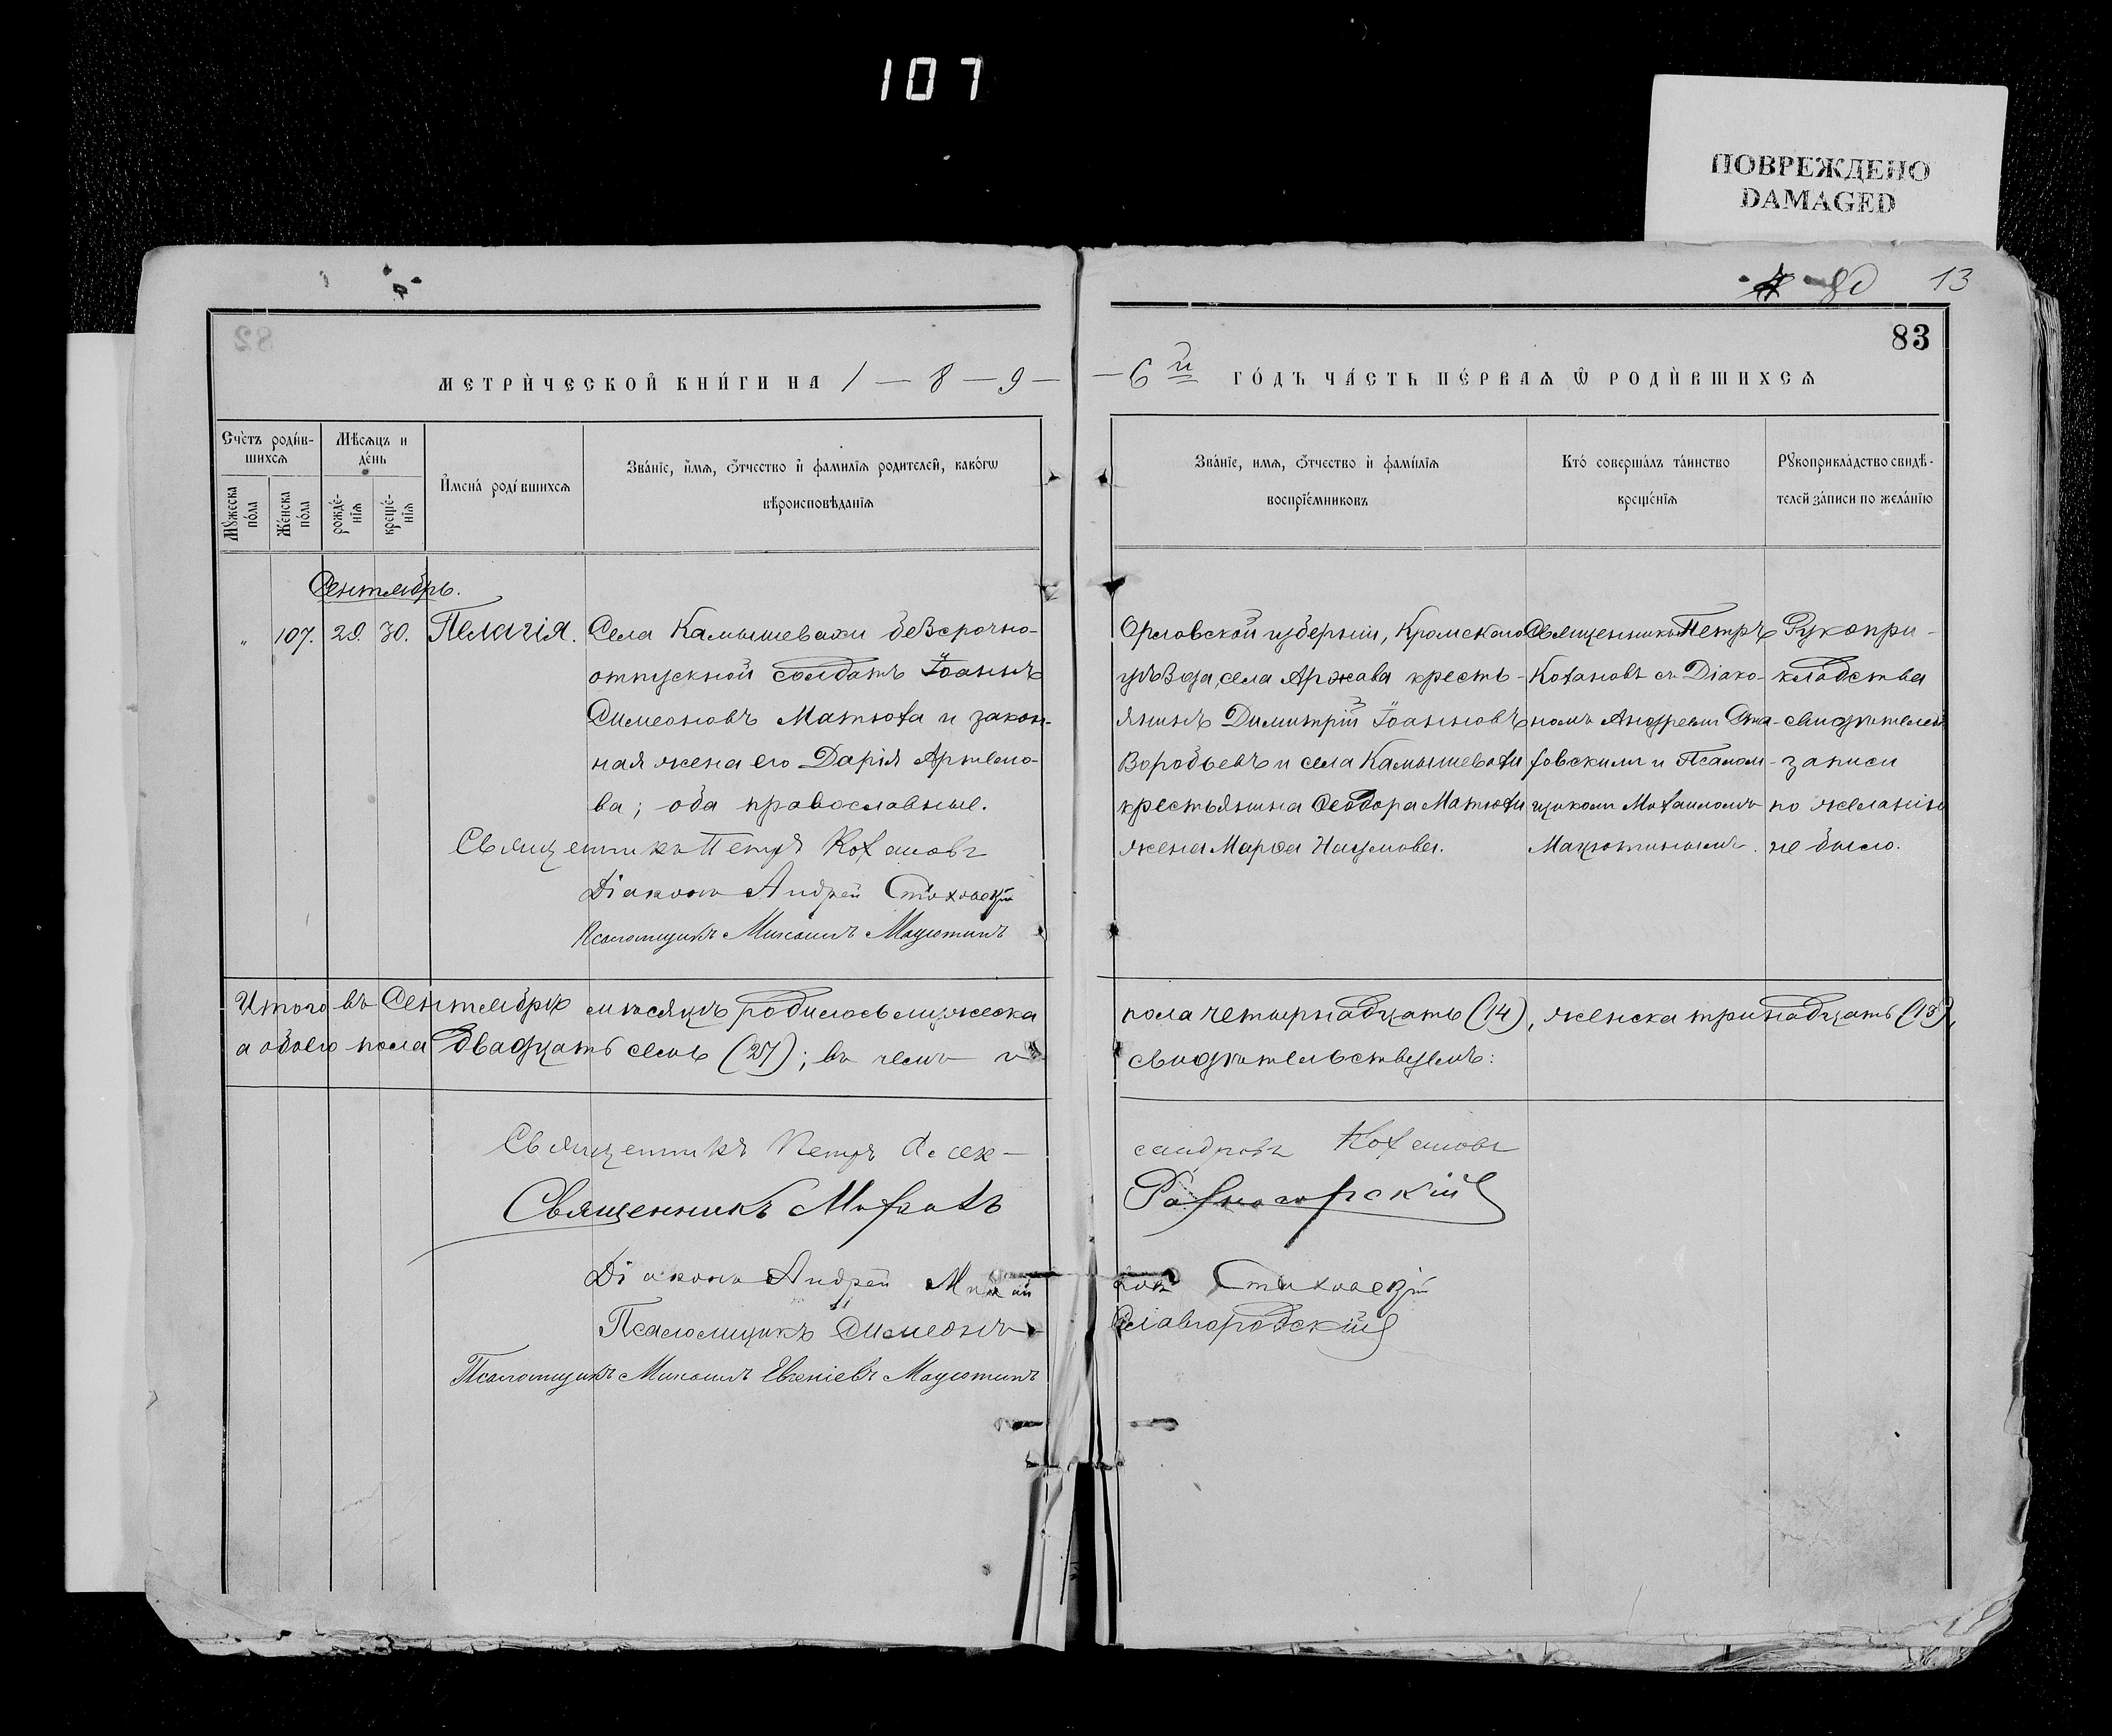 107
ПОВРЕЖДЕНО
DAMAGED
80 13
82
83
МЕТРИ́ЧЕСКОЙ КНИ́ГИ НА 1 — 8 — 9 —
— 6й ГО́ДЪ ЧА́СТЬ ПЕ́РВАѦ Ѡ РОДИ́ВШИХСѦ
Сче́тъ роди́в-
шихсѧ
Мꙋ́жеска
по́ла
Же́нска
по́ла
Мѣ́сѧцъ и
де́нь
рожде́-
нїѧ
креще́-
нїѧ
И҆мена́ роди́вшихсѧ
Зва́нїе, и҆́мѧ, ѻ҆́тчество и҆ фамилїѧ родителей, како́гѡ
вѣроисповѣданїѧ
Зва́нїе, имѧ, ѻ҆́тчество и҆ фами́лїѧ
воспрїе́мниковъ
Кто́ соверша́лъ та́инство
креще́нїѧ
Рꙋкоприкла́дство свидѣ́-
телей за́писи по жела́нїю
Сентябрь.
„ 107. 29. 30. Пелагія.
Села Камышевахи безсрочно-
отпускной солдатъ Іоаннъ
Симеоновъ Матюха и закон-
ная жена его Дарія Артемо-
ва; оба православные.
Священникъ Петръ Кохановъ
Діаконъ Андрей Стаховскій
Псаломщикъ Михаилъ Мацютинъ
Орловской губерніи, Кромскаго
уѣзда, села Аржава кресть-
янинъ Димитрій Іоанновъ
Воробьевъ и села Камышевахи
крестьянина Ѳеодора Матюхи
жена Марѳа Наумова.
Священникъ Петръ
Кохановъ съ Діако-
номъ Андреемъ Ста-
ховскимъ и Псалом-
щикомъ Михаиломъ
Мацютинымъ.
Рукопри-
кладства
свидѣтелей
записи
по желанію
не было.
Итого въ Сентябрѣ мѣсяцѣ родилось мужеска
пола четырнадцать (14), женска тринадцать (13),
а обоего пола двадцать семь (27); въ чемъ и
свидѣтельствуемъ:
Священникъ Петръ Алек-
сандровъ Кохановъ
Священникъ Михаилъ
Разногорскій
Діаконъ Андрей Михай
ловъ Стаховскій
Псаломщикъ Симеонъ
Славгородскій
Псаломщикъ Михаилъ Евгеніевъ Мацютинъ